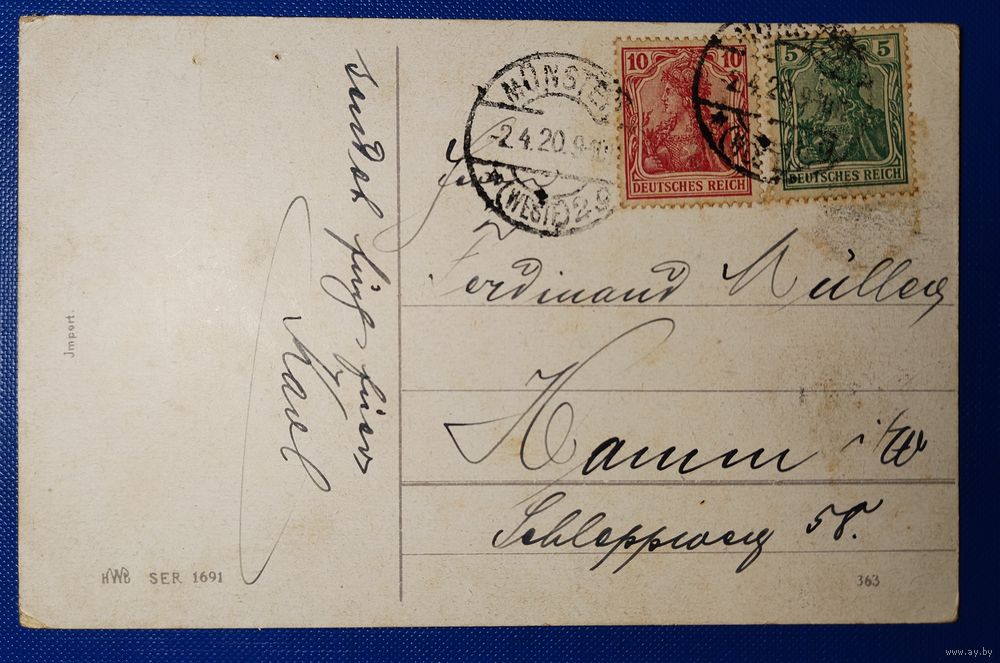 MÜNSTER
-2.4.20.9-10
(WESTF.) 2g
10 10
DEUTSCHES REICH
5 5
DEUTSCHES REICH
2.4.20.9-10
Herrn
Ferdinand Müller
Hamm i/W
Schleppweg 58.
sendet
Karl
Jmport.
HWB SER 1691
363
www.ay.by